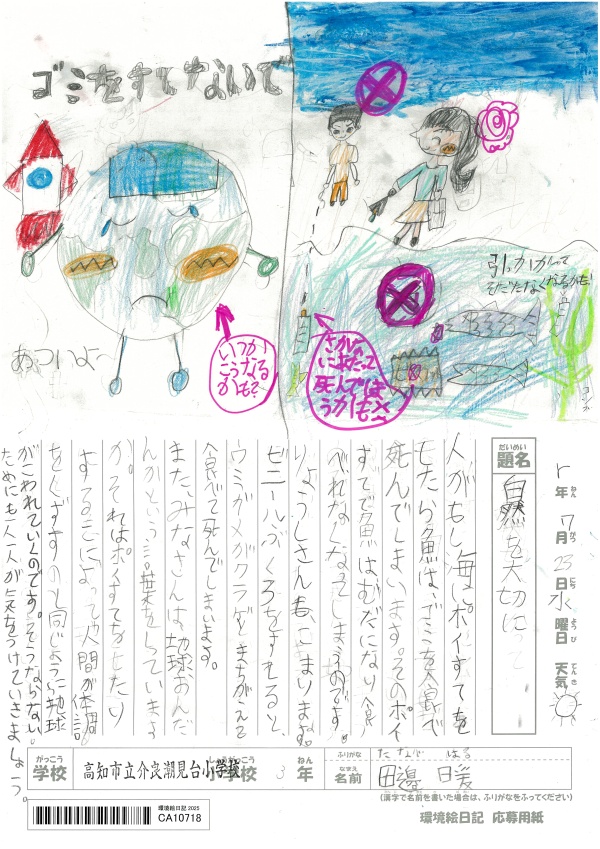 ゴミをすてないで
あついよ～
いつか
こうなる
かも？
さかなに
にあたって
死んでしま
うかも
引っかかって
そだたなくなるかも！
コンブ
だいめい
題名
自然を大切に
7年 7月 23日 水曜日 天気
ねん がつ にち ようび てんき
人がもし海にポイすてを
したら魚は、ゴミを食べて
死んでしまいます。そのポイ
すてで魚はむだになり食
べれなくなってしまうのです。
りょうしさんも、こまります。
ビニールぶくろをすてると、
ウミガメがクラゲとまちがえて
食べて死んでしまいます。
また、みなさんは地球おんだ
んかという言葉をしていますか
か。それはポイすてをしたり
することによって人間が体調
をくずすのと同じように地球
がこわれていくのです。そうならない
ためにも一人一人が気をつけていきましょう。
がっこう
学校
高知市立介良潮見台小学校
小学校
3年
ねん
ふりがな
たなべ はる
なまえ
名前
田邉 暖
(漢字で名前を書いた場合は、ふりがなをふってください)
環境絵日記 2025
CA10718
環境絵日記 応募用紙